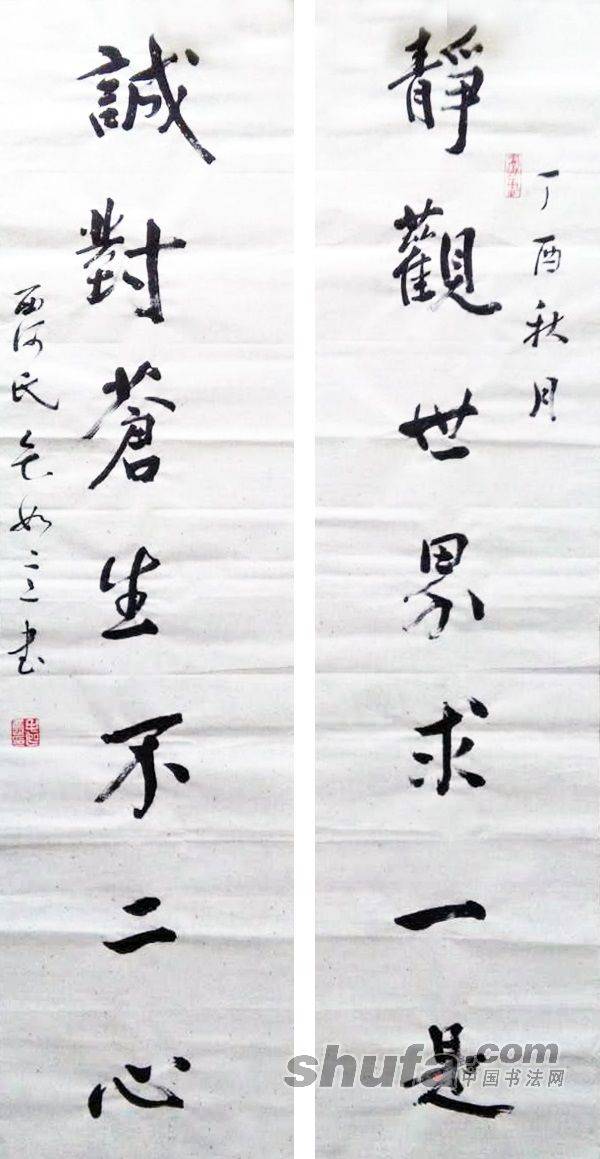 丁酉秋月
靜觀世界求一是
誠對蒼生不二心
西河氏
书
shufa.com
中国书法网